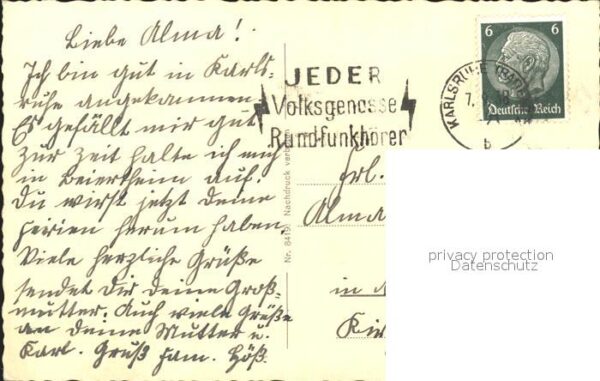 Liebe Alma!
Ich bin gut in Karls-
ruhe angekommen.
Es gefällt mir gut
zur Zeit halte ich mich
in Beiertheim auf.
Du wirst jetzt deine
Ferien herum haben.
Viele herzliche Grüße
sendet Dir deine Groß-
mutter. Auch viele Grüße
an Deine Mutter u.
Karl. Gruß Fam. Höß.
JEDER
Volksgenosse
Rundfunkhörer
KARLSRUHE (BADEN)
7.
b
6 6
Deutsches Reich
Nr. 8419 Nachdruck verb
Frl.
Alma
in
Kir
privacy protection
Datenschutz